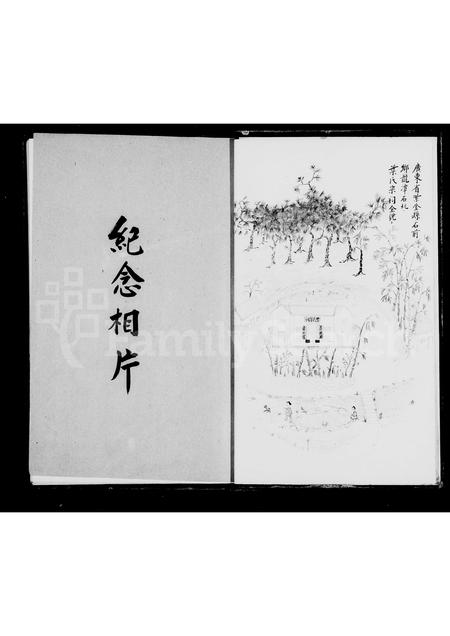 紀念相片
廣東省紫金縣石前
鄉龍潭石札
葉氏宗祠全覽
FamilySearch